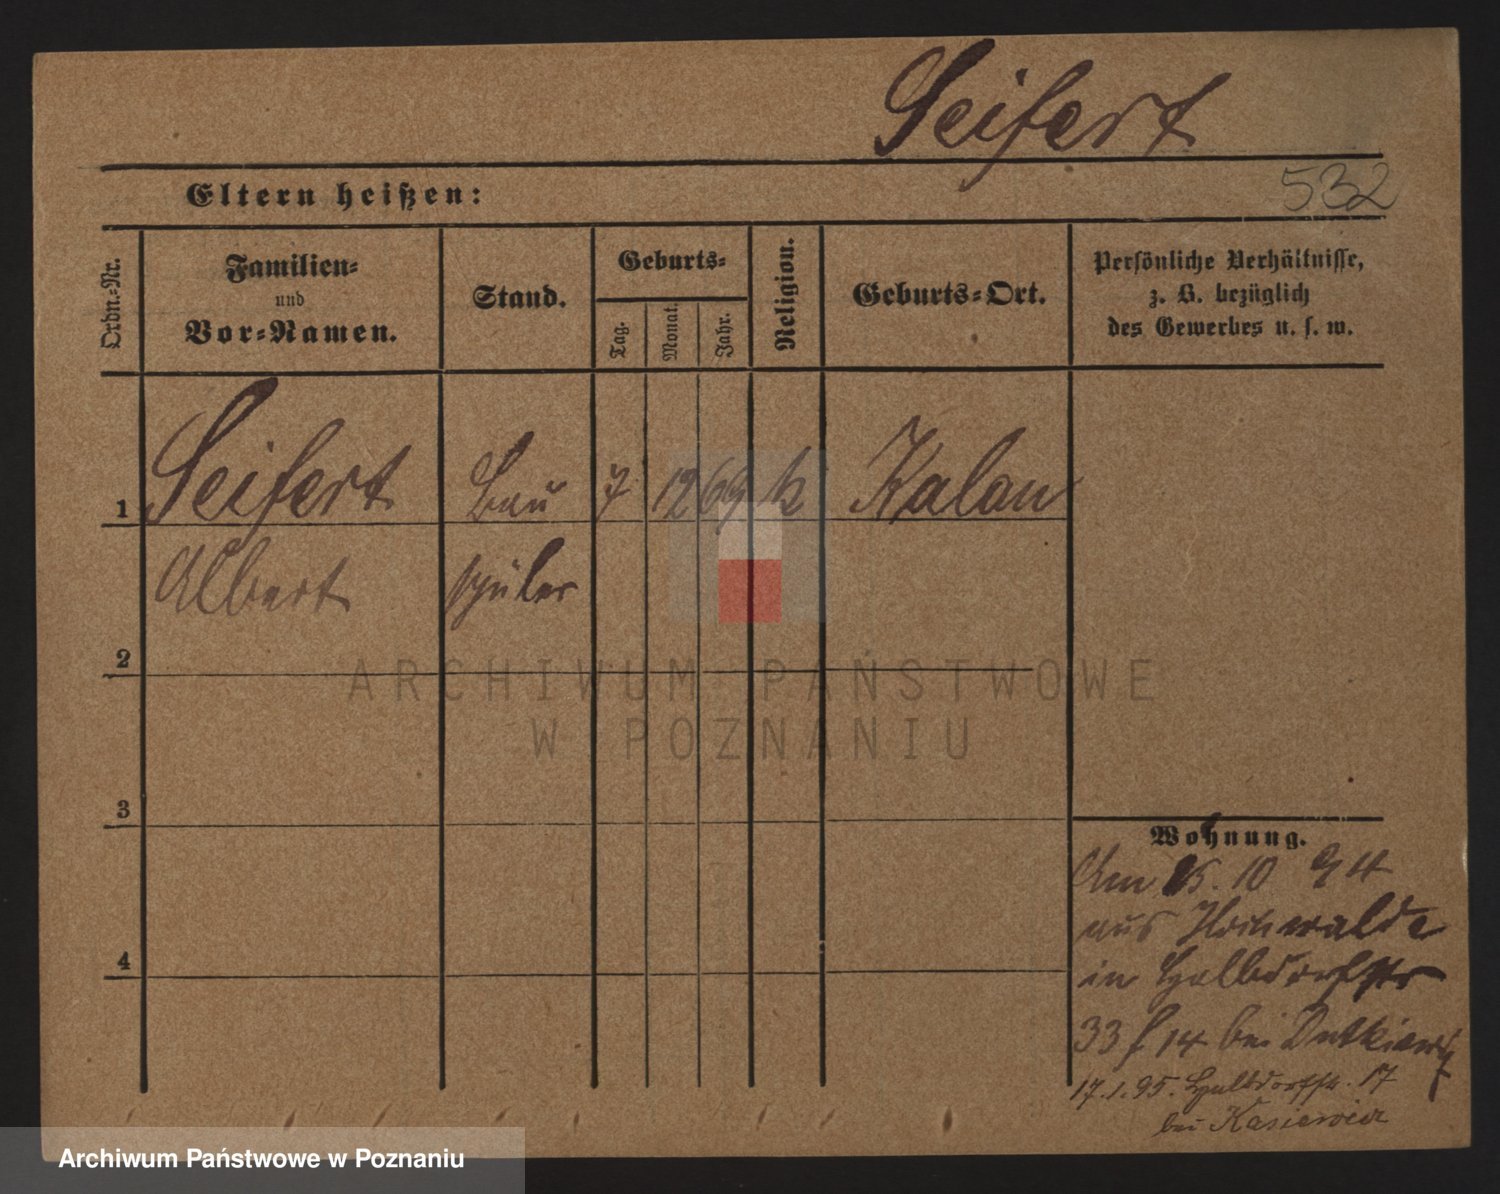 Seifert
Eltern heißen:
532
Ordn.-Nr.
Familien-
und
Vor-Namen.
Stand.
Geburts-
Tag.
Monat.
Jahr.
Religion.
Geburts-Ort.
Persönliche Verhältnisse,
z. B. bezüglich
des Gewerbes u. s. w.
1 Seifert Bau 7 12 69 k Kalau
Albert schüler
2
3
4
Wohnung.
Am 15. 10 94
aus
in Halbdorfstr
33 f 14 bei Dutkiewicz
17.1.95. Halbdorfstr. 17
bei Kasiewicz
ARCHIWUM PAŃSTWOWE
W POZNANIU
Archiwum Państwowe w Poznaniu